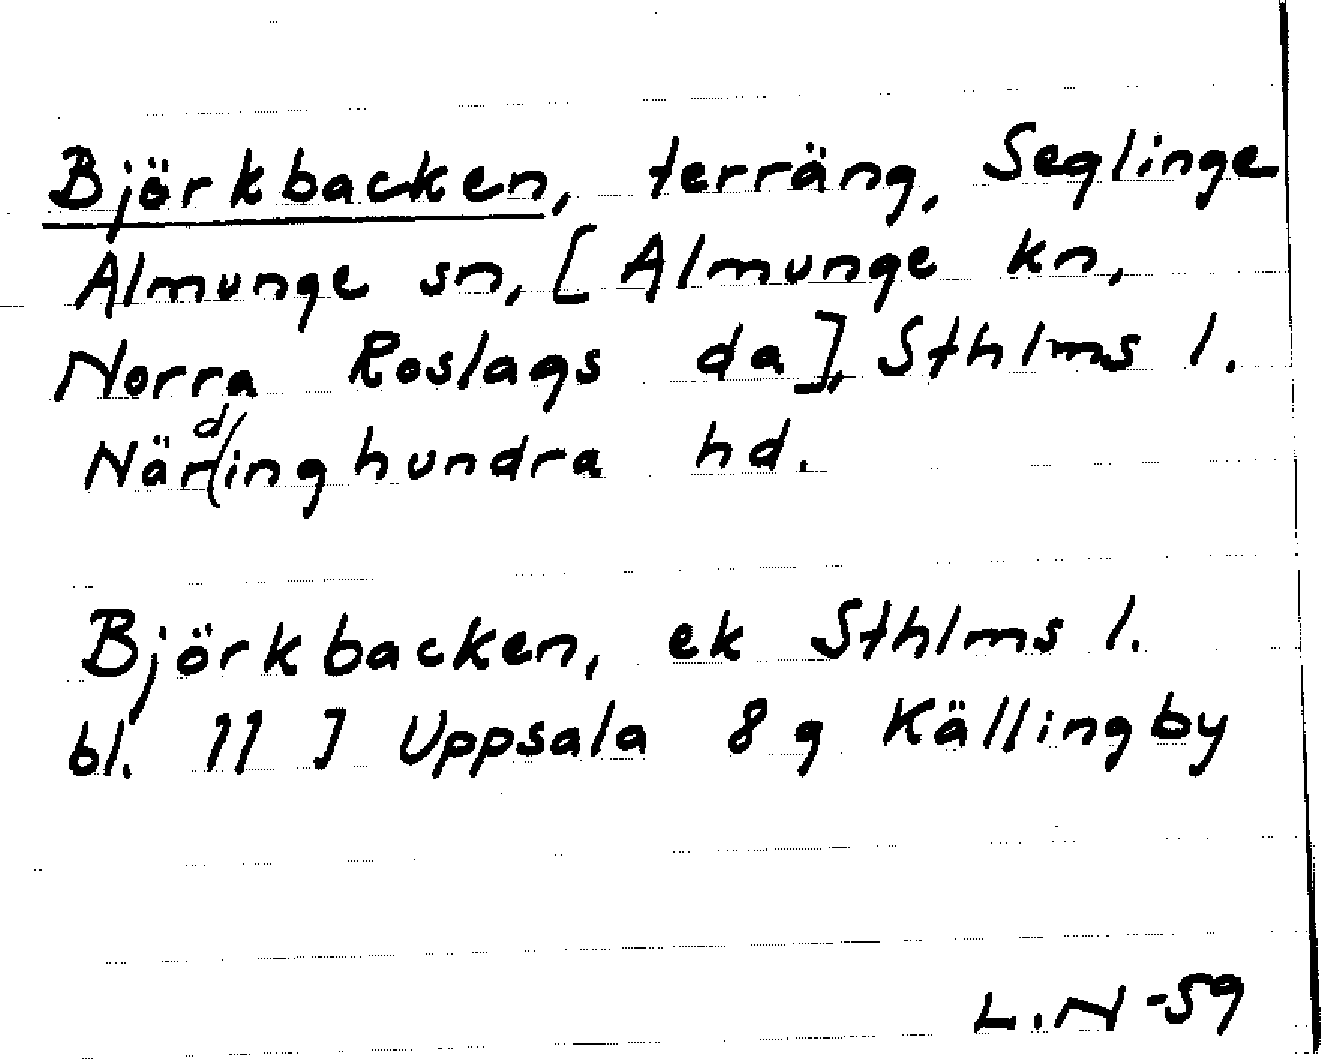 Björkbacken, terräng, Seglinge
Almunge sn, [Almunge kn,
Norra Roslags da], Sthlms l.
Närdinghundra hd.
Björkbacken, ek Sthlms l.
bl. 11 J Uppsala 8 g Källingby
L.N -59